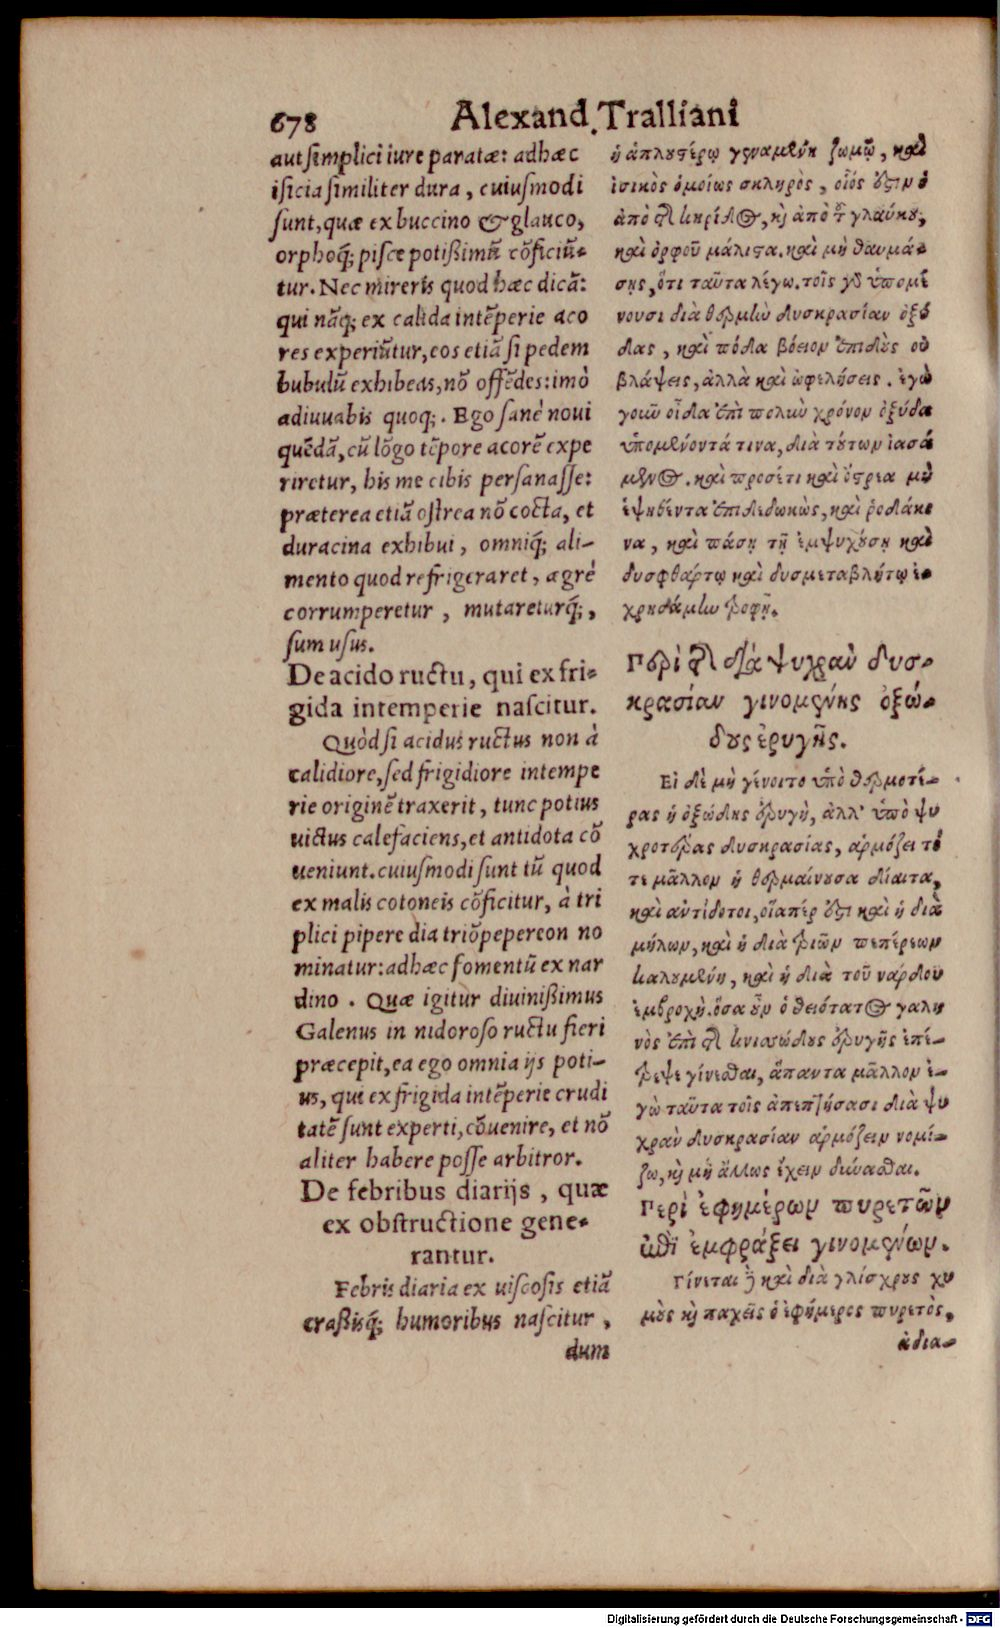 678 Alexand. Tralliani
aut simplici iure paratæ: adhæc
isicia similiter dura, cuiusmodi
sunt, quæ ex buccino & glauco,
orphoq́; pisce potißimũ cõficiũ-
tur. Nec mireris quod hæc dicã:
qui nãq; ex calida intẽperie aco
res experiũtur, eos etiã si pedem
bubulũ exhibeas, nõ offẽdes: imò
adiuuabis quoq;. Ego sanè noui
quẽdã, cũ lõgo tẽpore acorẽ expe
riretur, his me cibis persanasse:
præterea etiã ostrea nõ cocta, et
duracina exhibui, omniq́; ali-
mento quod refrigeraret, ægrè
corrumperetur, mutareturq́;,
sum usus.
De acido ructu, qui ex fri-
gida intemperie nascitur.
Quòd si acidus ructus non à
calidiore, sed frigidiore intempe
rie originẽ traxerit, tunc potius
uictus calefaciens, et antidota cõ
ueniunt. cuiusmodi sunt tũ quod
ex malis cotoneis cõficitur, à tri
plici pipere dia triõpepereon no
minatur: adhæc fomentũ ex nar
dino. Quæ igitur diuinißimus
Galenus in nidoroso ructu fieri
præcepit, ea ego omnia ijs poti-
us, qui ex frigida intẽperie crudi
tatẽ sunt experti, cõuenire, et nõ
aliter habere posse arbitror.
De febribus diarijs, quæ
ex obstructione gene-
rantur.
Febris diaria ex uiscosis etiã
craßisq́; humoribus nascitur,
dum
ἢ ἁπλουστέρῳ γεναμένη ζωμῷ, καὶ
ἰσικὸς ὁμοίως σκληρὸς, οἷός ἐστιν ὁ
ἀπὸ τῆς κηρίδος, καὶ ἀπὸ τοῦ γλαύκου,
καὶ ὀρφοῦ μάλιστα. καὶ μὴ θαυμά-
σῃς, ὅτι ταῦτα λέγω. τοῖς γὰρ ὑπομέ
νουσι διὰ θερμὴν δυσκρασίαν ὀξύ
δας, καὶ πόδα βόειον ἐπιδοὺς οὐ
βλάψεις, ἀλλὰ καὶ ὠφελήσεις. ἐγὼ
γοῦν οἶδα ἐπὶ πολὺν χρόνον ὀξύδα
ὑπομένοντά τινα, διὰ τούτων ἰασά
μενος. καὶ προσέτι καὶ ὄστρεα μὴ
ἑψηθέντα ἐπιδεδωκὼς, καὶ ῥοδάκι
να, καὶ πάσῃ τῇ ἐμψυχούσῃ καὶ
δυσφθάρτῳ καὶ δυσμεταβλήτῳ ἐ-
χρησάμην τροφῇ.
Περὶ τῆς διὰ ψυχρὰν δυσ-
κρασίαν γινομένης ὀξώ-
δους ἐρυγῆς.
Εἰ δὲ μὴ γένοιτο ὑπὸ θερμοτέ-
ρας ἡ ὀξώδης ἐρυγὴ, ἀλλ' ὑπὸ ψυ
χροτέρας δυσκρασίας, ἁρμόζει τό
τε μᾶλλον ἡ θερμαίνουσα δίαιτα,
καὶ αὐτίδοτοι, οἵαπέρ ἐστι καὶ ἡ διὰ
μήλων, καὶ ἡ διὰ τριῶν πεπέρεων
καλουμένη, καὶ ἡ διὰ τοῦ νάρδου
ἐμβροχὴ. ὅσα οὖν ὁ θειότατος γαλη
νὸς ἐπὶ τῆς κνισώδους ἐρυγῆς ἐπέ-
τρεψε γίνεσθαι, ἅπαντα μᾶλλον ἐ-
γὼ ταῦτα τοῖς ἀπεπτήσασι διὰ ψυ
χρὰν δυσκρασίαν ἁρμόζειν νομί-
ζω, καὶ μὴ ἄλλως ἔχειν δύνασθαι.
Περὶ ἐφημέρων πυρετῶν
ἐπὶ ἐμφράξει γινομένων.
Γίνεται δὲ καὶ διὰ γλίσχρους χυ
μοὺς καὶ παχεῖς ὁ ἐφήμερος πυρετὸς,
ἀδια-
Digitalisierung gefördert durch die Deutsche Forschungsgemeinschaft - DFG